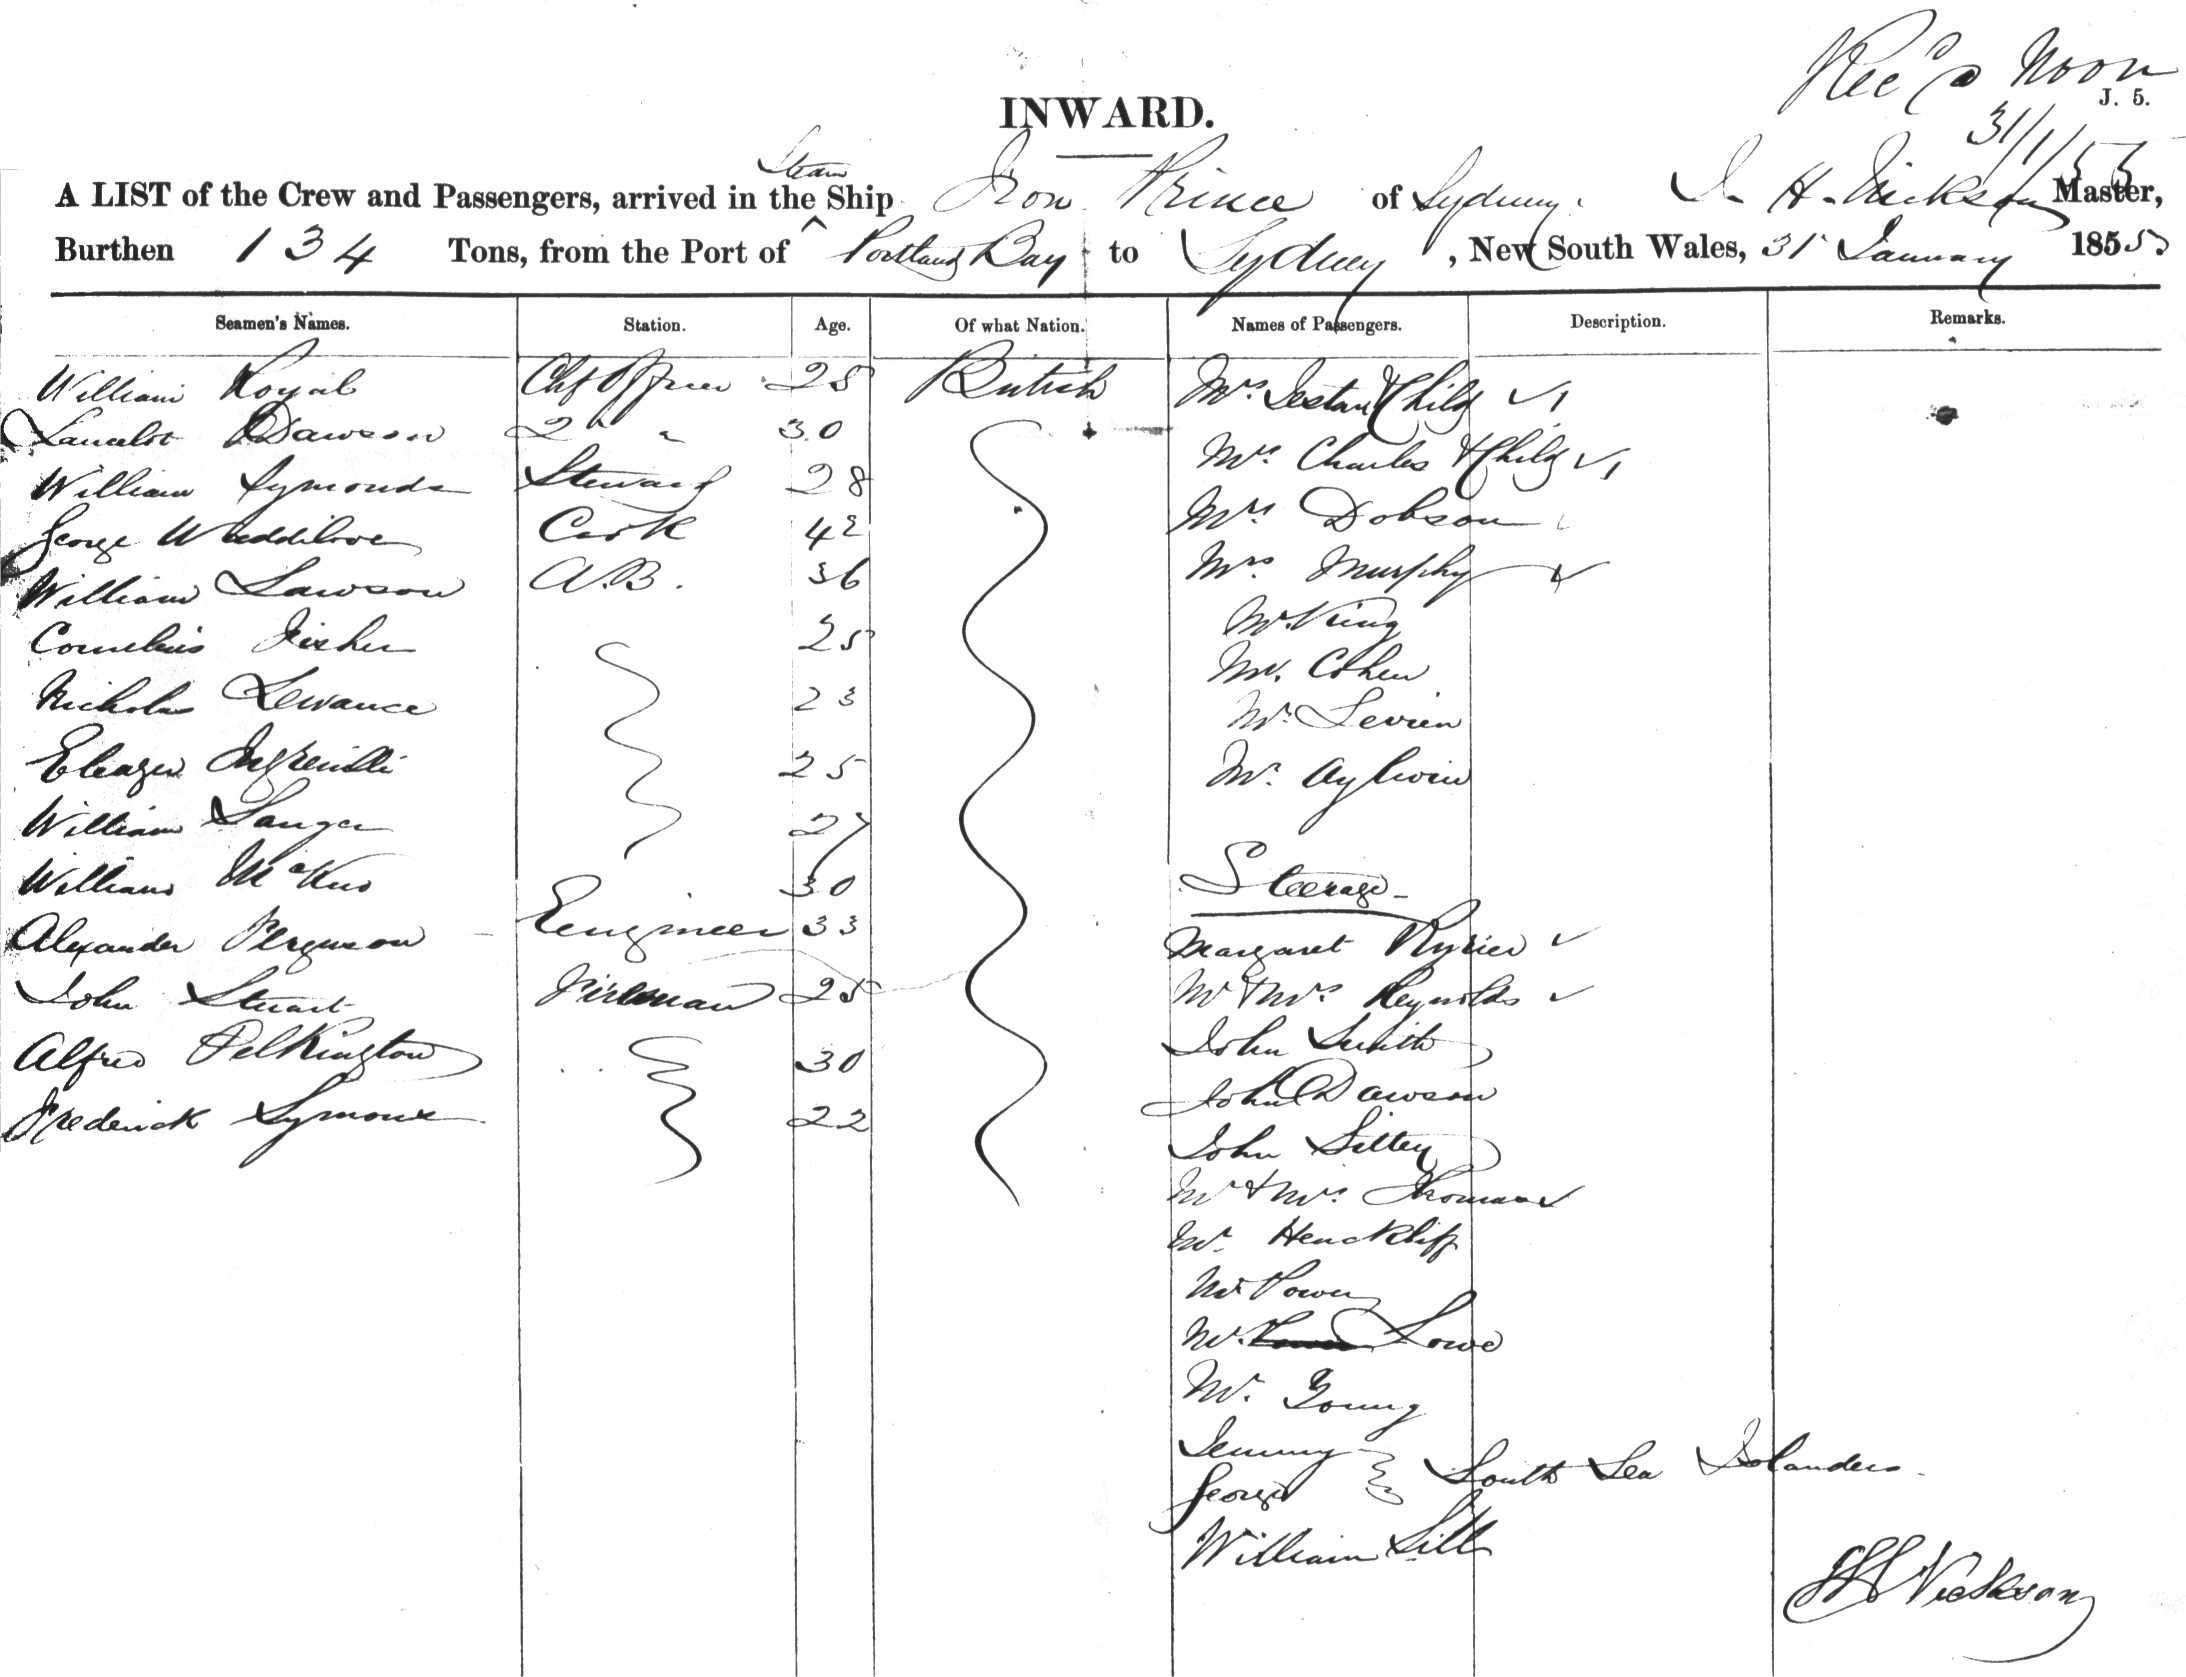 Rec'd Noon
J. 5.
31/1/55
INWARD.
Steam
A LIST of the Crew and Passengers, arrived in the Ship Iron Prince of Sydney. H. Nickson Master,
Burthen 134 Tons, from the Port of Portland Bay to Sydney, New South Wales, 31st January 1855
Seamen's Names. Station. Age. Of what Nation. Names of Passengers. Description. Remarks.
William Royal Chf Officer 25 British Mrs. & Child
Lancelot Dawson 2 " " 30
Mrs. Charles & Child
William Symonds Steward 28
Mrs Dobson
George Waddilove Cook 42
Mrs. Murphy
William Lawson A.B. 36
Mr. King
Cornelius Fisher 25
Mr. Cohen
Nicholas Lewance 23
Mr. Levien
Eleazer 25
Mr. Aylwin
William Sanger 27
William 30
Steerage
Alexander Ferguson Eengineer 33
Margaret
John Stuart Fireman 25
Mr & Mrs Reynolds
Alfred Pelkington 30
John Smith
John Dawson
Frederick 22
John Sittey
Mr & Mrs. Thomas
Mr. Henckliff
Mr. Power
Mr. Lowe
Mr. Young
Jemmy
George South Sea Islanders
William Sill
Nickson